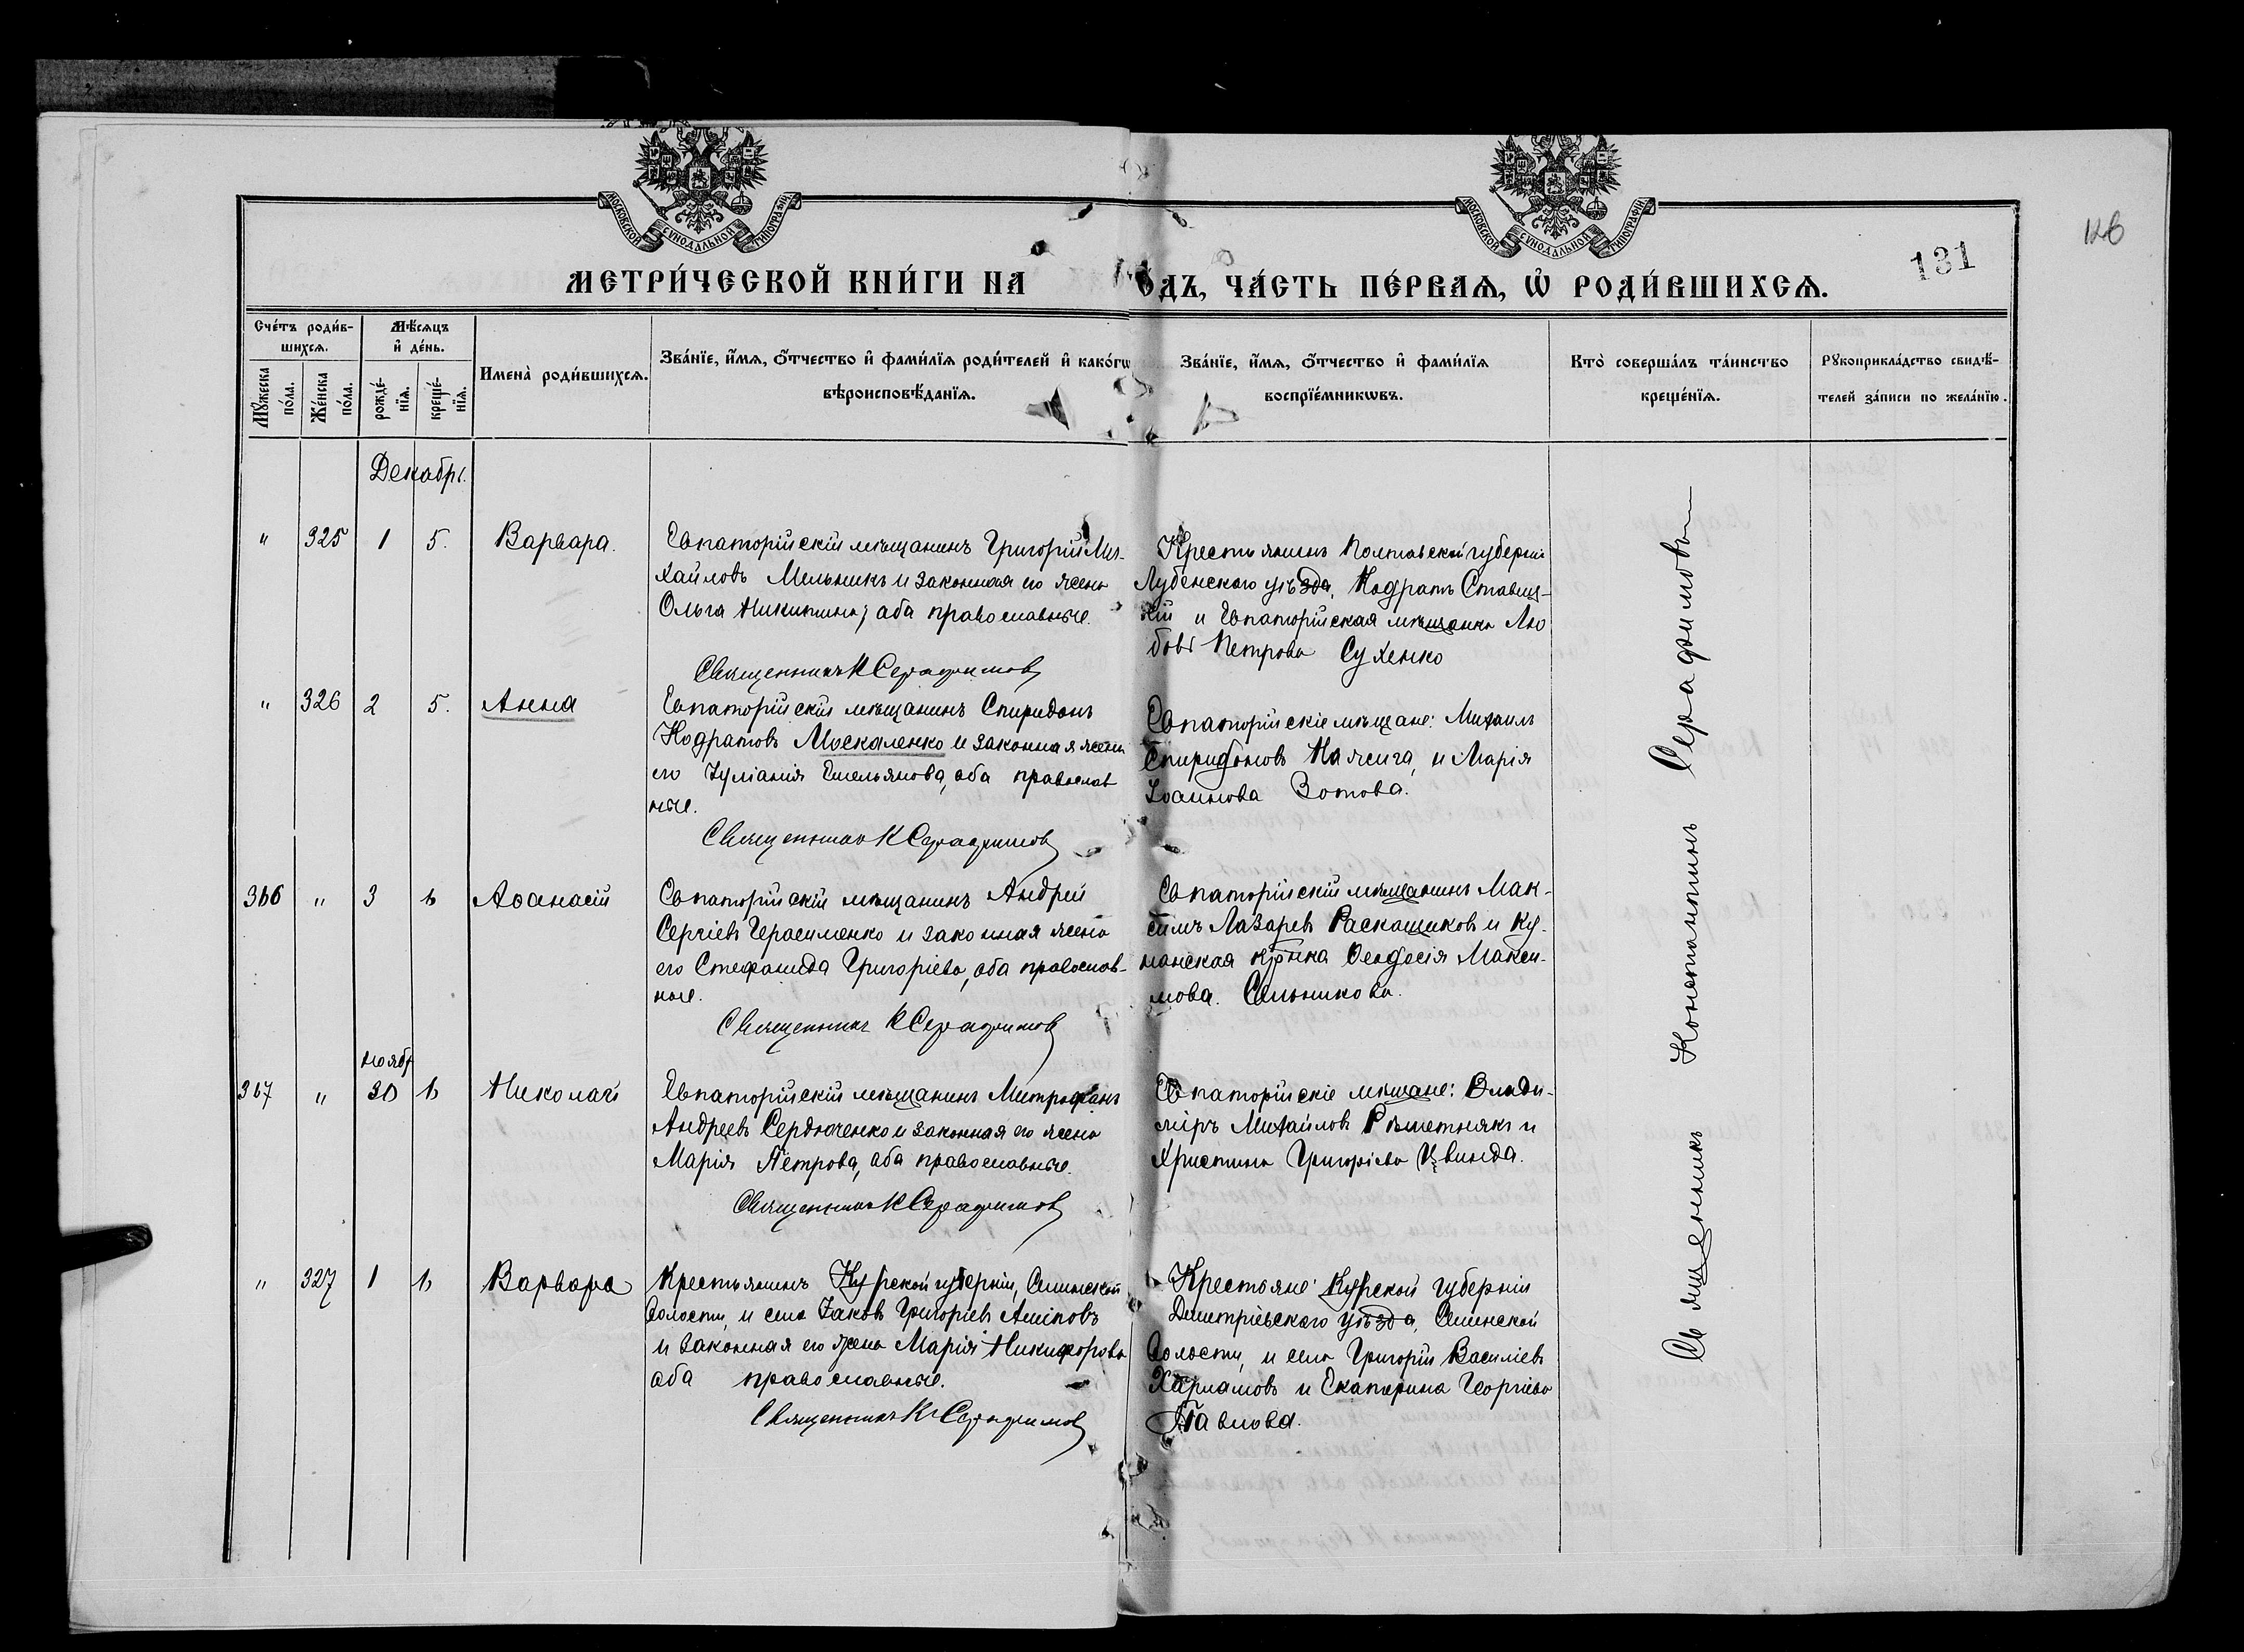 МОСКОВСКОЙ СУНОДАЛЬНОЙ ТИПОГРАФІИ
МОСКОВСКОЙ СУНОДАЛЬНОЙ ТИПОГРАФІИ
126
131
МЕТРИ́ЧЕСКОЙ КНИ́ГИ НА ГО́ДЪ, ЧА́СТЬ ПЕ́РВАѦ, Ѡ РОДИ́ВШИХСѦ.
Сче́тъ роди́в-
шихсѧ.
Мꙋ́жеска по́ла.
Же́нска по́ла.
Мѣ́сѧцъ
и де́нь.
рожде́-
нїѧ.
креще́-
нїѧ.
Имена̀ роди́вшихсѧ.
Зва́нїе, и́мѧ, ѻ́тчество и фами́лїѧ роди́телей и како́гѡ
вѣроисповѣ́данїѧ.
Зва́нїе, и́мѧ, ѻ́тчество и фами́лїѧ
воспрїе́мникѡвъ.
Кто̀ соверша́лъ та́инство
креще́нїѧ.
Рꙋкоприкла́дство свидѣ́-
телей за́писи по жела́нїю.
Декабрь.
" 325 1 5. Варвара.
Евпаторійскій мѣщанинъ Григорій Ми-
хайловъ Мельникъ и законная его жена
Ольга Никитина, оба православные.
Священникъ К Серафимовъ
Крестьянинъ Полтавской губерніи
Лубенскаго уѣзда, Кодратъ Ставиц-
кій и Евпаторійская мѣщанка Лю
бовь Петрова Сухенко
" 326 2 5. Анна
Евпаторійскій мѣщанинъ Спиридонъ
Кодратовъ Москаленко и законная жена
его Іуліанія Емельянова, оба православ
ные.
Священникъ К Серафимовъ
Евпаторійскіе мѣщане: Михаилъ
Спиридоновъ Калсига, и Марія
Іоаннова Зотова.
366 " 3 6 Аѳанасій
Евпаторійскій мѣщанинъ Андрей
Сергіевъ Герасименко и законная жена
его Стефанида Григоріева, оба православ-
ные.
Священникъ К Серафимовъ
Евпаторійскій мѣщанинъ Мак-
симъ Лазаревъ Раскащиковъ и Ку-
манская кр-нка Ѳеодосія Макси-
мова. Сальникова.
Ноябр
367 " 30 6 Николай
Евпаторійскій мѣщанинъ Митрофанъ
Андреевъ Сердюченко и законная его жена
Марія Петрова, оба православные.
Священникъ К Серафимовъ
Евпаторійскіе мѣщане: Влади-
міръ Михайловъ Рѣшетнякъ и
Христина Григоріева Цвинда.
" 327 1 6 Варвара
Крестьянинъ Курской губерніи, Селинской
волости, и села Іаковъ Григоріевъ Аниковъ
и законная его жена Марія Никифорова
оба православные.
Священникъ К Серафимовъ
Крестьяне Курской губерніи
Димитріевскаго уѣзда, Селинской
волости, и села Григорій Василіевъ
Харламовъ и Екатерина Георгіева
Павлова.
Священникъ Константинъ Серафимовъ